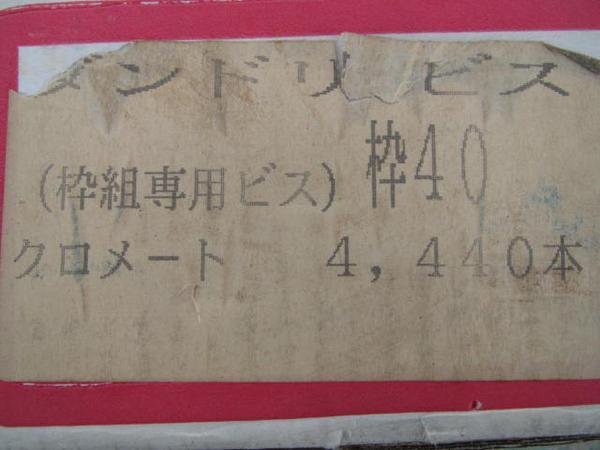 ダンドリビス
(枠組専用ビス) 枠40
クロメート 4,440本